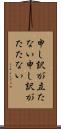 申し訳が立た
ない申し訳が
たたない